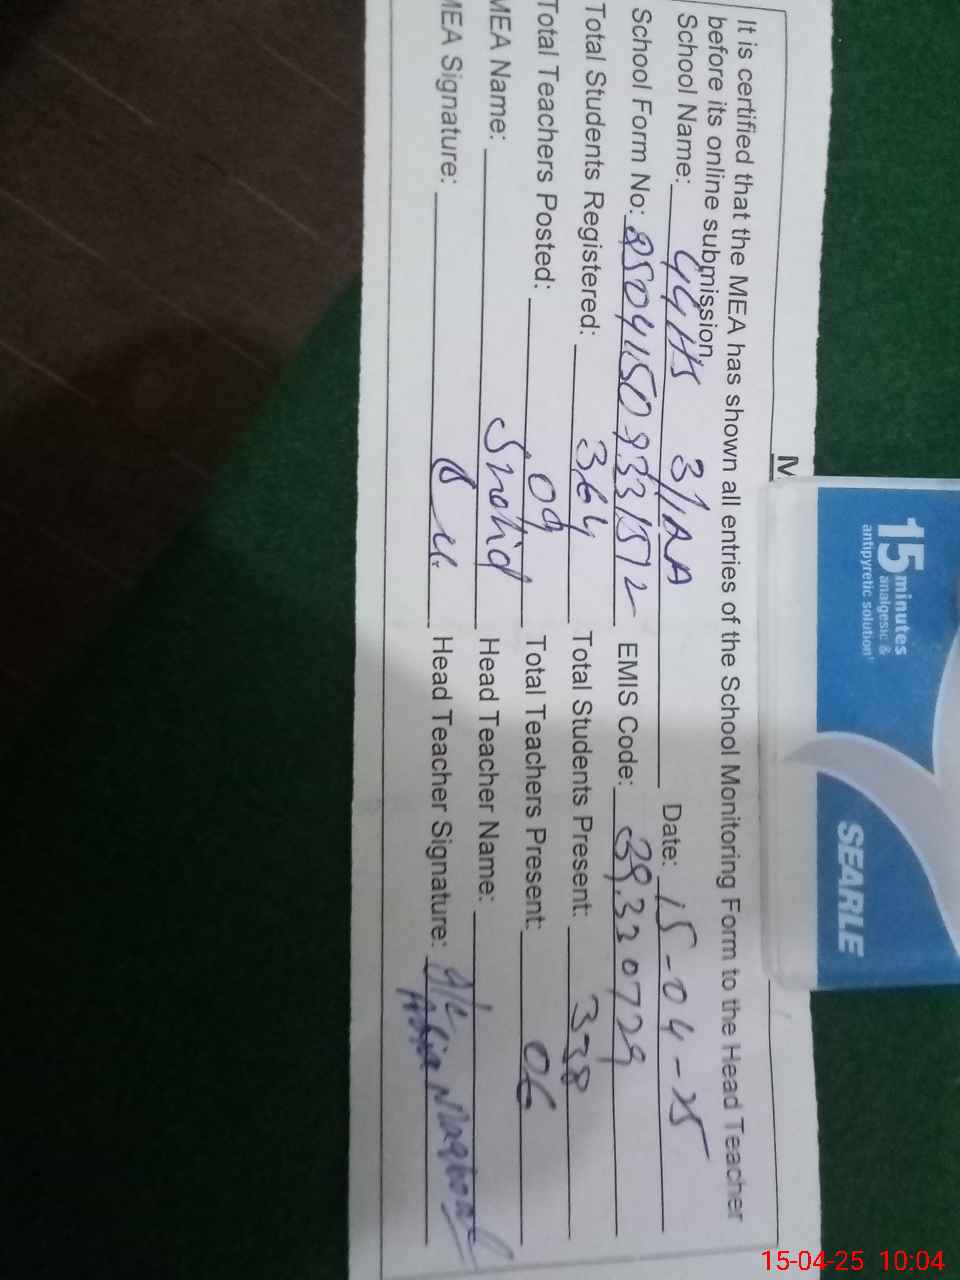 M
It is certified that the MEA has shown all entries of the School Monitoring Form to the Head Teacher
before its online submission.
School Name: GGHS 31/2A Date: 15-04-25
School Form No: 85041509331512 EMIS Code: 39320729
Total Students Registered: 364 Total Students Present: 338
Total Teachers Posted: 09 Total Teachers Present: 06
MEA Name: Shahid Head Teacher Name:
MEA Signature: Head Teacher Signature: Maqbool
15 minutes
analgesic &
antipyretic solution!
SEARLE
15-04-25 10:04